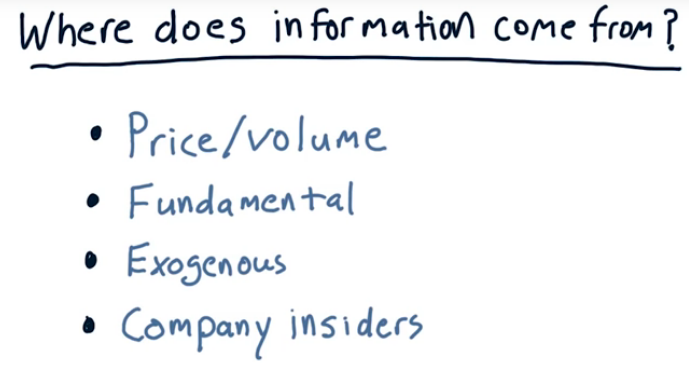 Where does information come from?
• Price/volume
• Fundamental
• Exogenous
• Company insiders